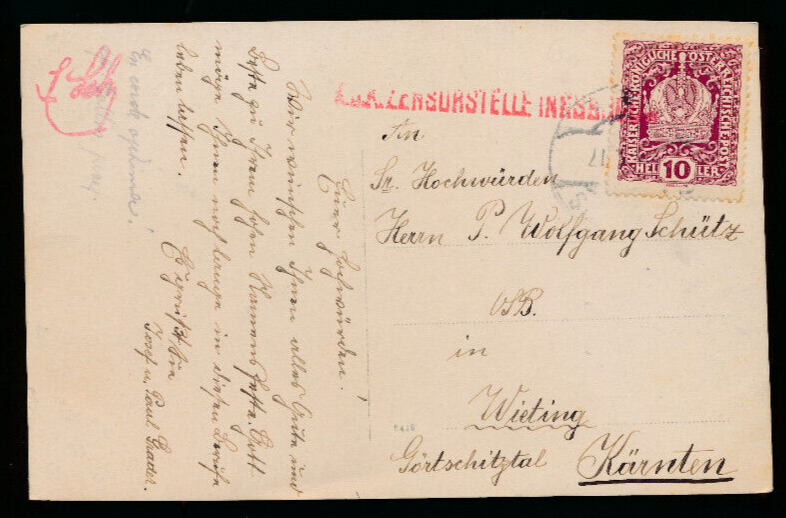 K.u.K. ZENSURSTELLE INNSBRUCK
KAISERLICHE KÖNIGLICHE ÖSTERREICHISCHE POST
10
HELLER
17
An
Sr. Hochwürden
Herrn P. Wolfgang Schütz
OSB.
in
Wieting
Görtschitztal Kärnten
Euer Hochwürden!
Wir wünschen Ihnen alles Gute und
Beste zu Ihrem hohen Namensfeste. Gott
möge Ihnen noch lange in diesen Berufe
leben lassen.
Es grüßt Sie
Josef u. Paul